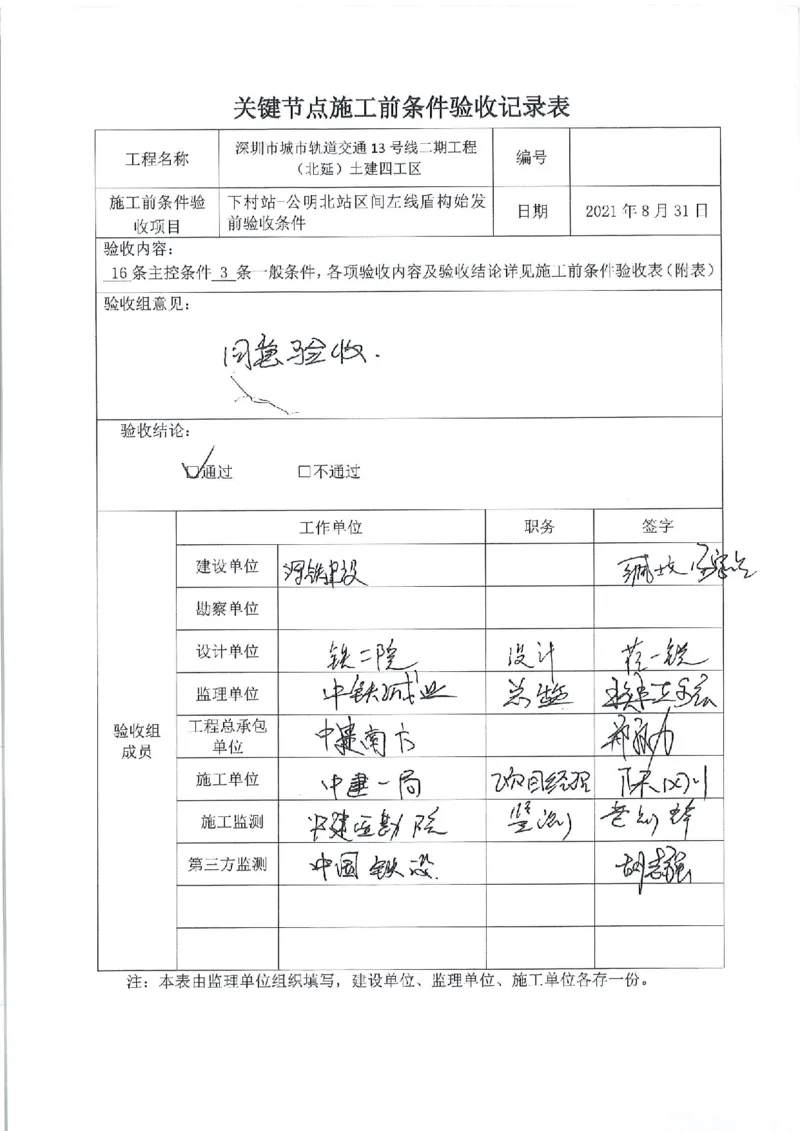 关键节点施工前条件验收记录表
工程名称
深圳市城市轨道交通 13 号线二期工程
（北延）土建四工区
编号
施工前条件验
收项目
下村站-公明北站区间左线盾构始发
前验收条件
日期
2021 年 8 月 31 日
验收内容：
16 条主控条件 3 条一般条件，各项验收内容及验收结论详见施工前条件验收表（附表）
验收组意见：
同意验收.
验收结论：
☑通过 □不通过
验收组
成员
工作单位 职务 签字
建设单位 深铁建设
勘察单位
设计单位 铁二院 设计
监理单位 中铁诚业 总监
工程总承包
单位
中建南方
施工单位 中建一局 项目经理
施工监测 监测
第三方监测 中国铁设. 胡志强
注：本表由监理单位组织填写，建设单位、监理单位、施工单位各存一份。